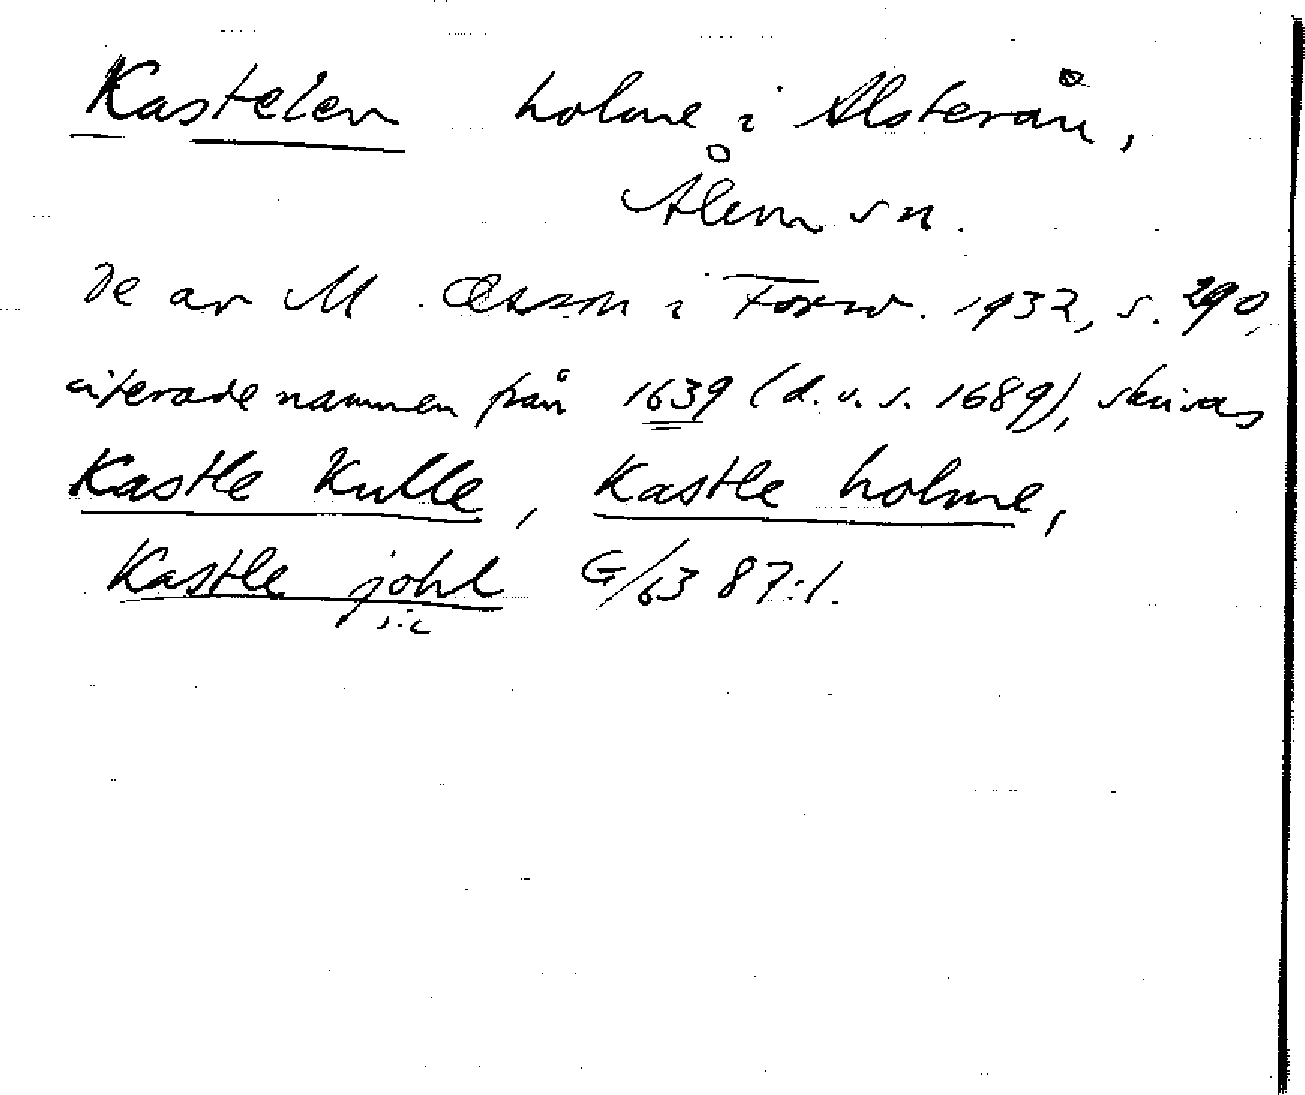 Kastelen holme i Alsterån,
Ålem sn.
De av M. Olsson i Fornv. 1932, s. 290,
citerade namnen från 1639 (d.v.s. 1689), skrivas
Kastle Kulle, Kastle holme,
Kastle johl G/63 87:1.
sic